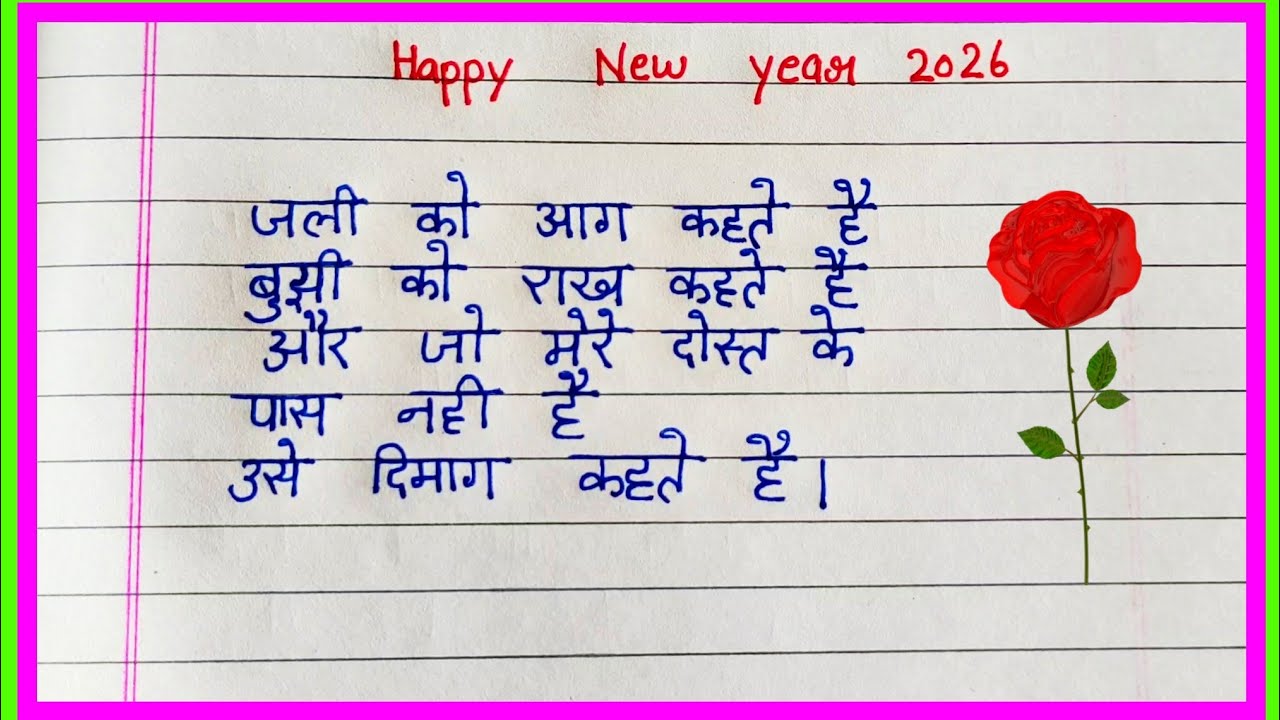 Happy New year 2026
जली को आग कहते है
बुझी को राख कहते है
और जो मेरे दोस्त के
पास नही है
उसे दिमाग कहते है।